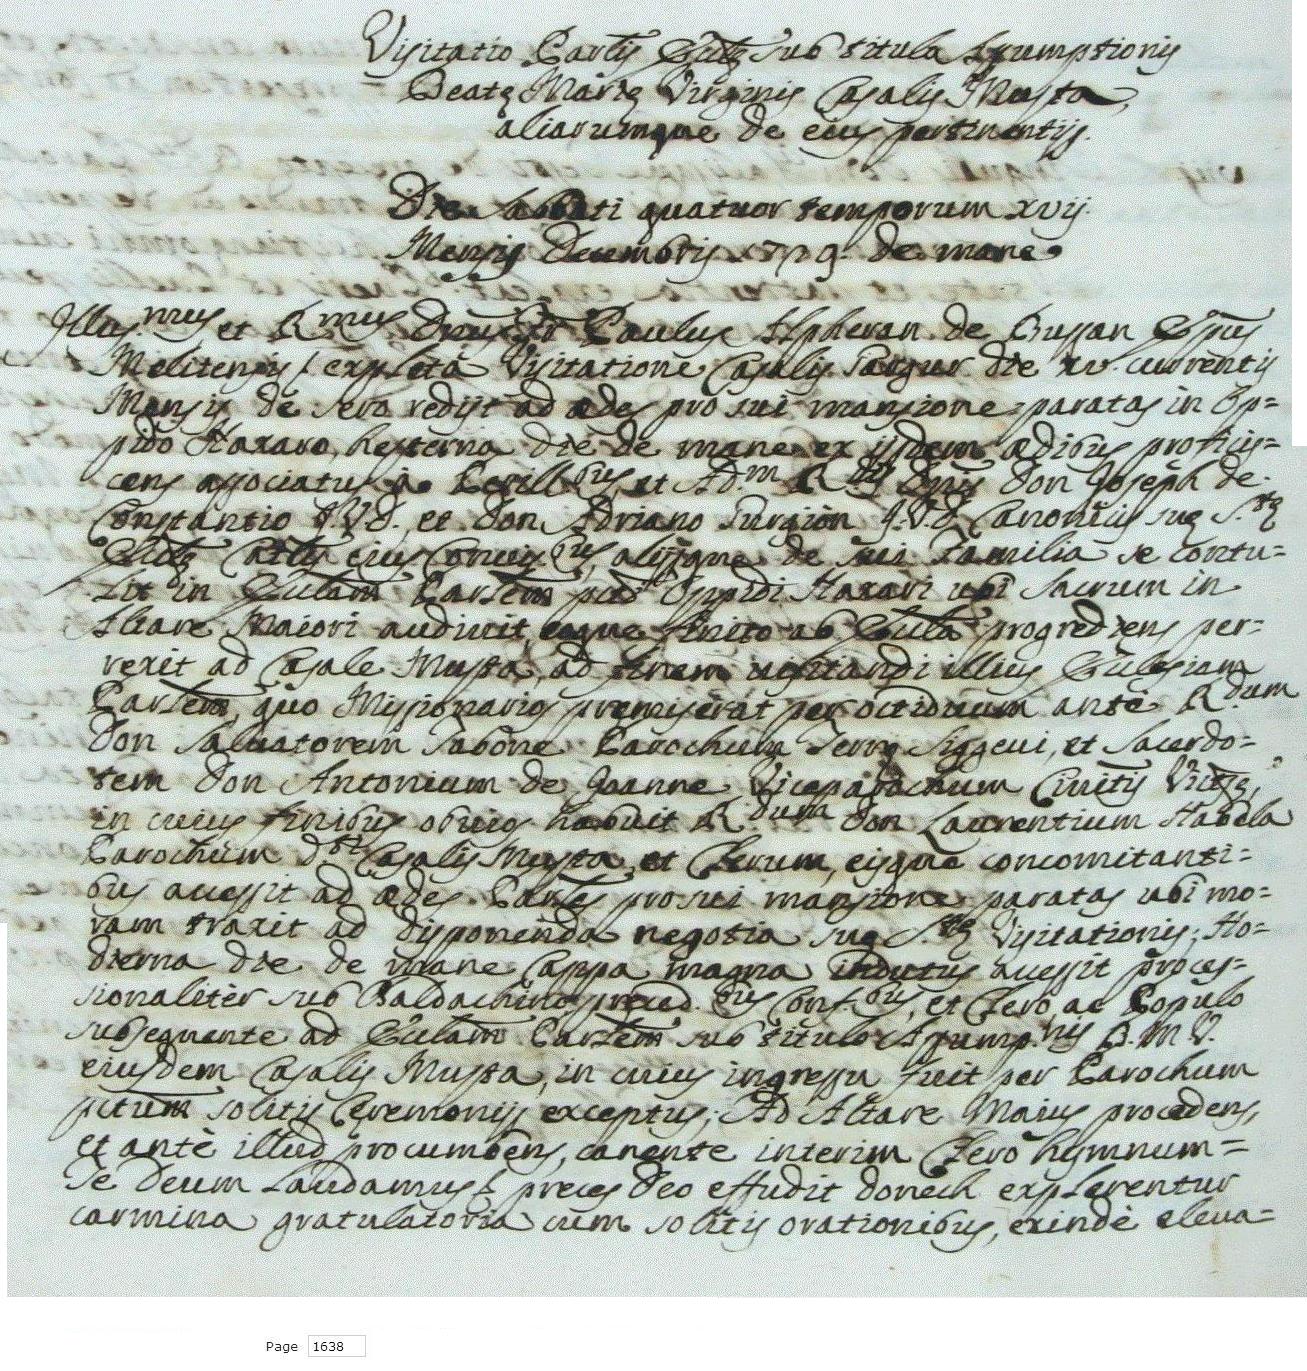 Visitatio Parlis Eccłæ sub titulo Assumptionis
Beatę Marię Virginis Casalis Musta,
aliarumque de eius pertinentijs.
Die Sabbati quatuor temporum xvij.
Mensis Decembris 1729. de mane
Illus.mus et R.mus Dnus Fr Paulus Alpheran de Bussan Epũs
Melitensis expletâ Visitatione Casalis Gargur die xv. currentis
Mensis de sero redijt ad ædes pro sui mansione paratas in Op=
pido Naxaro, hesterna die de mane ex ijsdem ædibus proficis=
cens associatus à Perill.bus, et Ad.m R.dis Dnis Don Joseph de
Constantio J.V.D. et Don Adriano Surgion J.V.D. Canonicis suę S.tę
Eccłę Catłis eius Convis.bus, alijsque de sui Familia se contu=
lit in Eccłam Parlem Oppidi Naxari ubi Sacrum in
Altare Maiori audivit, eoque finito ab Eccła progrediens per=
rexit ad Casale Musta, ad finem visitandi illius Ecclesiam
Parlem, quo Missionarios premiserat per octiduum antè R.dum
Don Salvatorem Sabone Parochum Terrę Siggeui, et Sacerdo=
tem Don Antonium de Joanne Viceparochum Civitis Vict.ę,
in cuius finibus obvios habuit R.dum Don Laurentium Habela
Parochum d.sti Casalis Musta, et Clerum, eisque concomitanti=
bus accessit ad ædes Parles pro sui mansione paratas ubi mo=
ram traxit ad disponenda negotia suę S.tę Visitationis; Ho=
dierna die de mane Cappa magna indutus accessit proces=
sionalitèr sub Baldachino preced.bus Conf.bus, et Clero, ac Populo
subsequente ad Eccłam Parlem sub titulo Assump.nis B.M.V.
eiusdem Casalis Musta, in cuius ingressu fuit per Parochum
pctum solitis Ceremonijs exceptus; Ad Altare Maius procedens,
et antè illud procumbens, canente interim Clero hymnum=
Te Deum Laudamus preces Deo effudit donech explerentur
carmina gratulatoria cum solitis orationibus, exindè eleva=
Page 1638